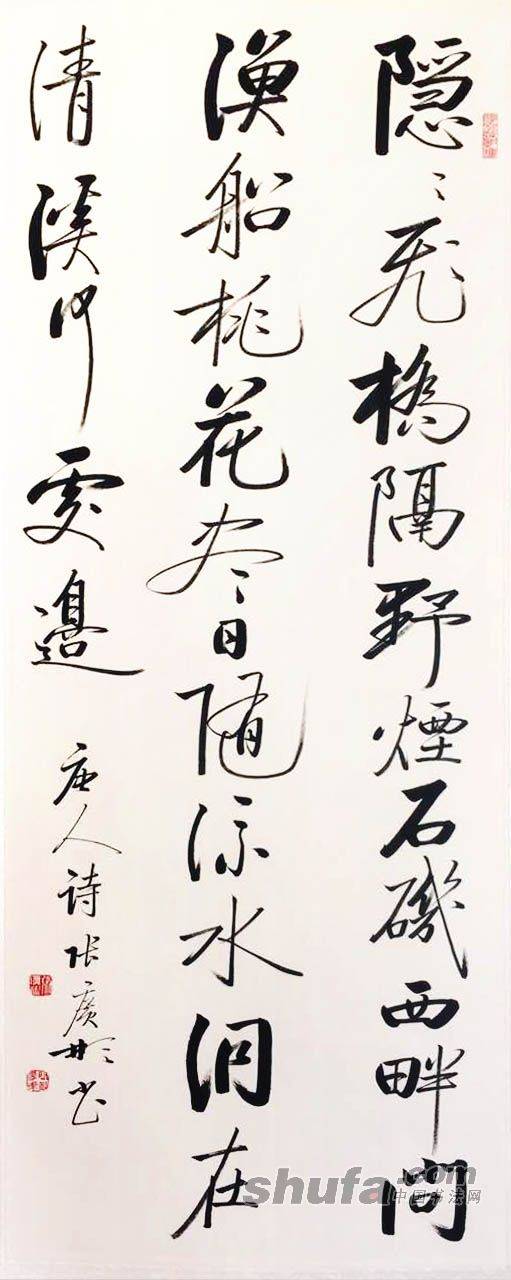 隐〻飛橋隔野煙石磯西畔問
漁船桃花尽日随流水洞在
清溪何處邊
唐人诗张廣彬书
shufa.com
中国书法网